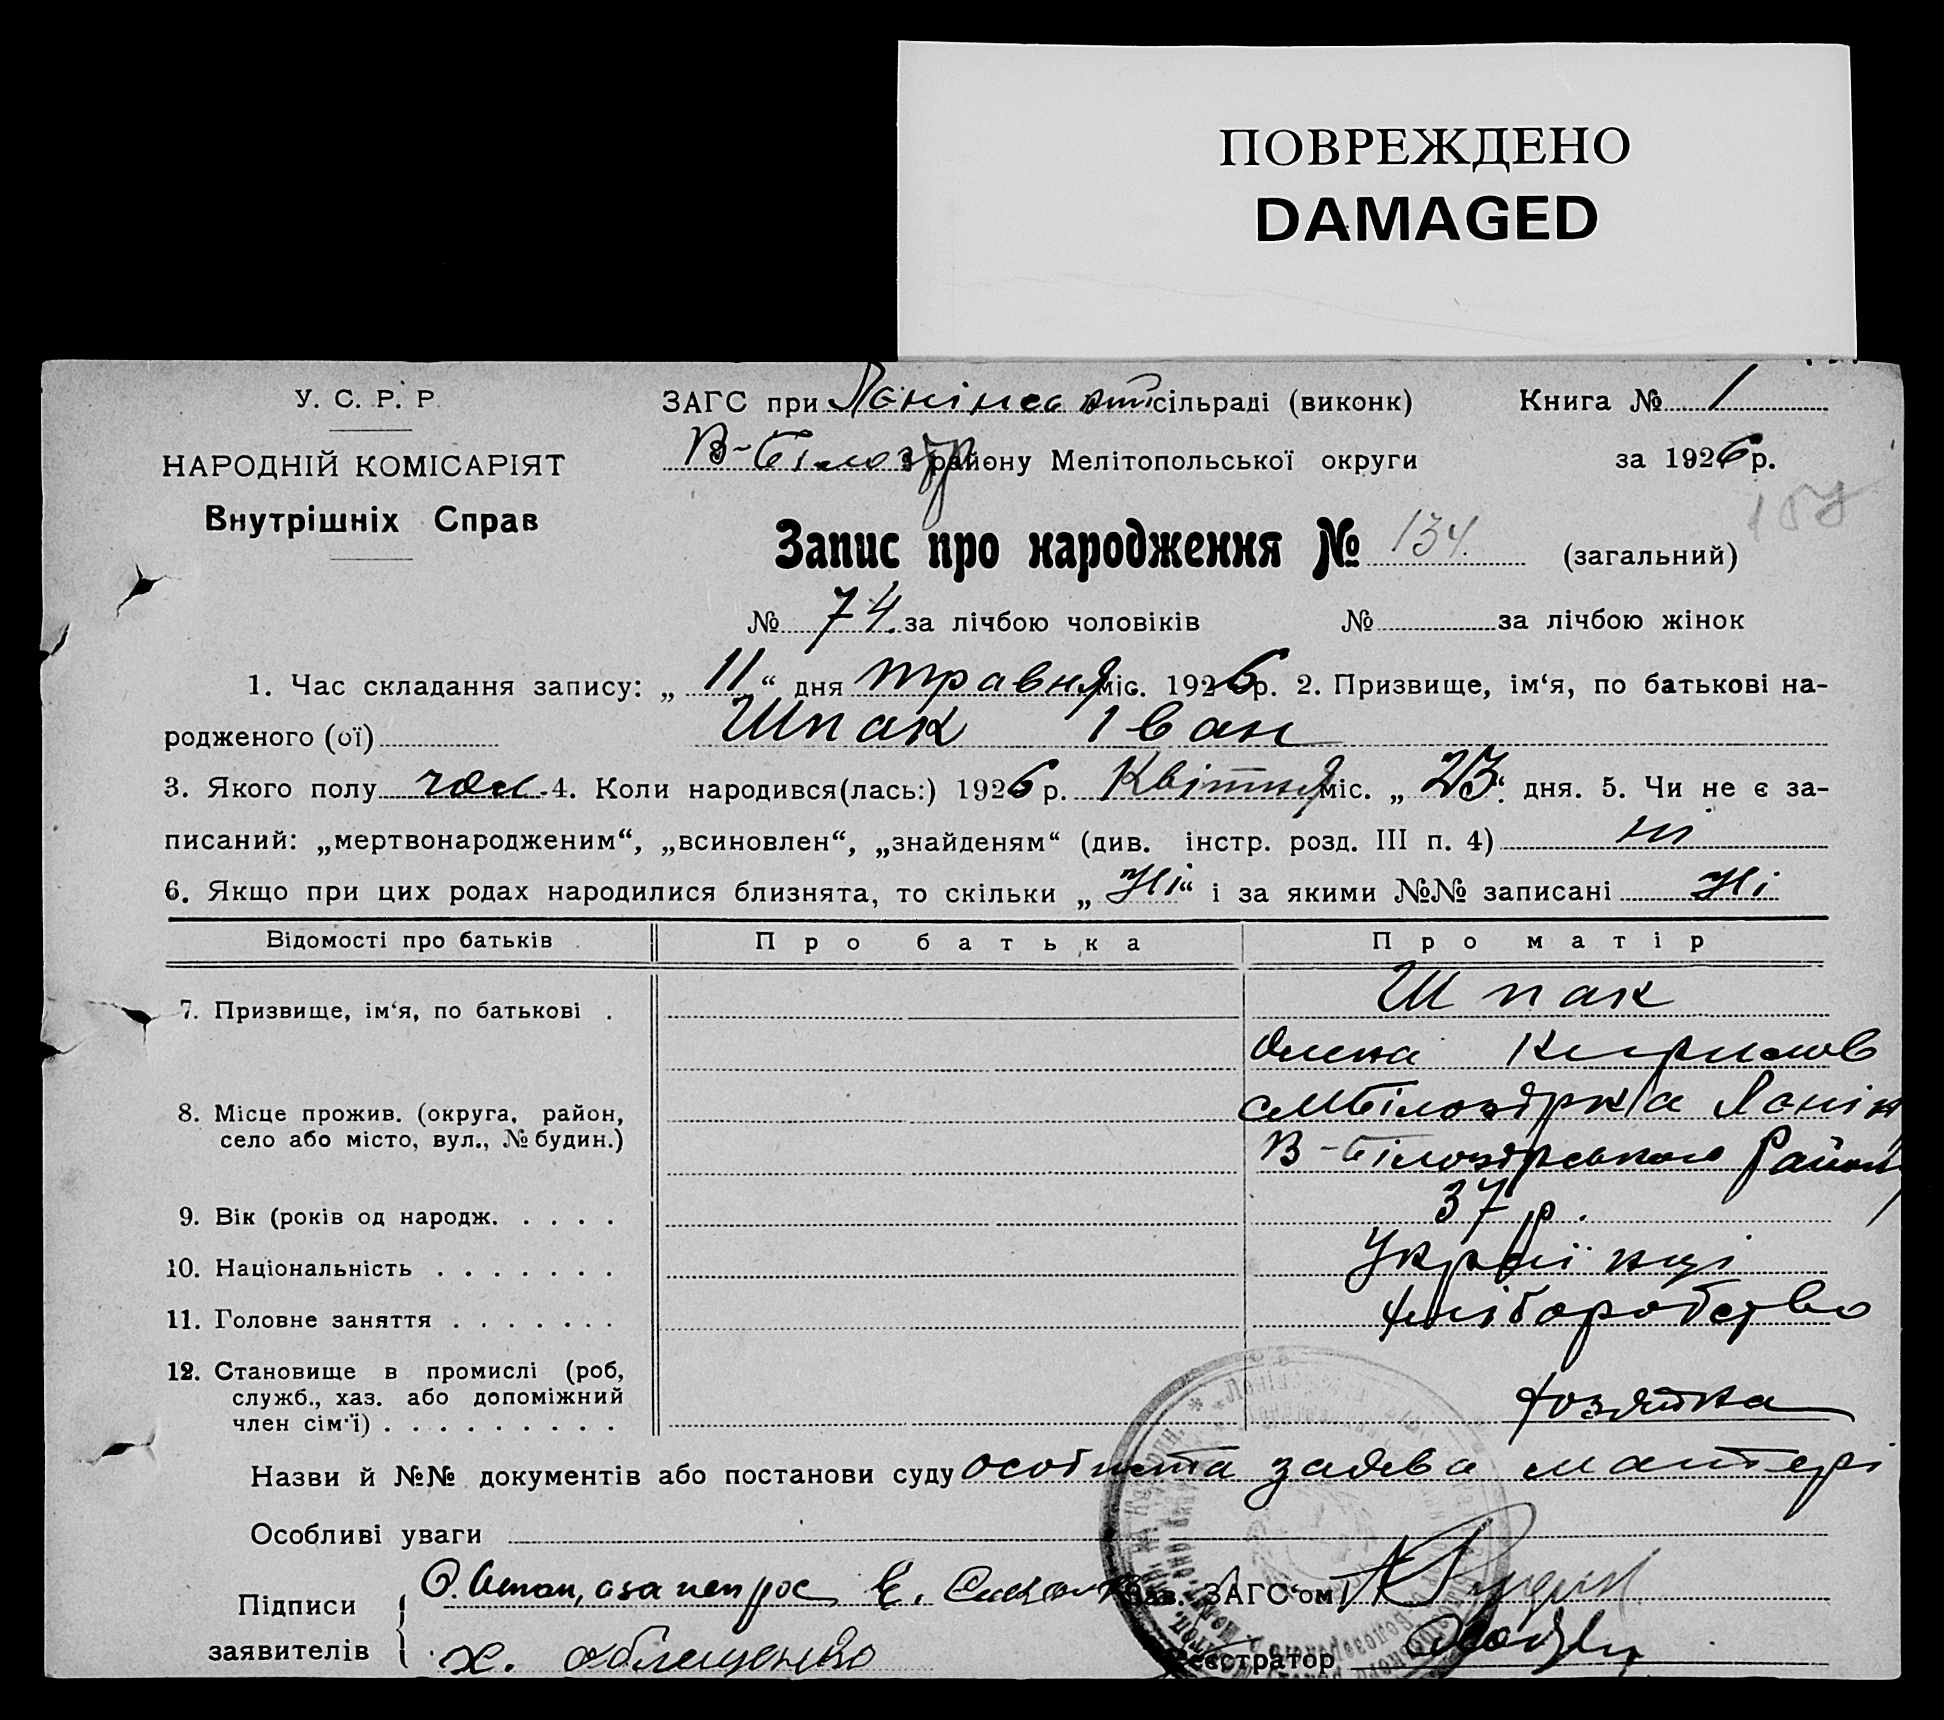 ПОВРЕЖДЕНО
DAMAGED
У. С. Р. Р
ЗАГС при сільраді (виконк) Книга № 1
НАРОДНІЙ КОМІСАРІЯТ
В-Білозір району Мелітопольської округи за 1926 р.
Внутрішніх Справ
Запис про народження № 134. (загальний)
№ 74. за лічбою чоловіків № за лічбою жінок
1. Час складання запису: „ 11 “ дня травня міс. 1926 р. 2. Призвище, ім‘я, по батькові на-
родженого (ої) Шпак Іван
3. Якого полу чол. 4. Коли народився(лась:) 1926 р. Квітня міс. „ 23 “ дня. 5. Чи не є за-
писаний: „мертвонародженим“, „всиновлен“, „знайденям“ (див. інстр. розд. III п. 4) ні
6. Якщо при цих родах народилися близнята, то скільки „ Ні “ і за якими №№ записані Ні
Відомості про батьків Про батька Про матір
7. Призвище, ім‘я, по батькові . Шпак
Олена Кирилов
8. Місце прожив. (округа, район,
село або місто, вул., № будин.)
В-Білозірського Району
9. Вік (років од народж. . . . . 37 р.
10. Національність . . . . . . . Українці
11. Головне заняття . . . . . . . хліборобство
12. Становище в промислі (роб,
служб., хаз. або допоміжний
член сім‘ї) . . . . . . . . . хозяйка
Назви й №№ документів або постанови суду особиста заява матері
Особливі уваги
Підписи
заявителів
Зав. ЗАГС‘ом
Реєстратор